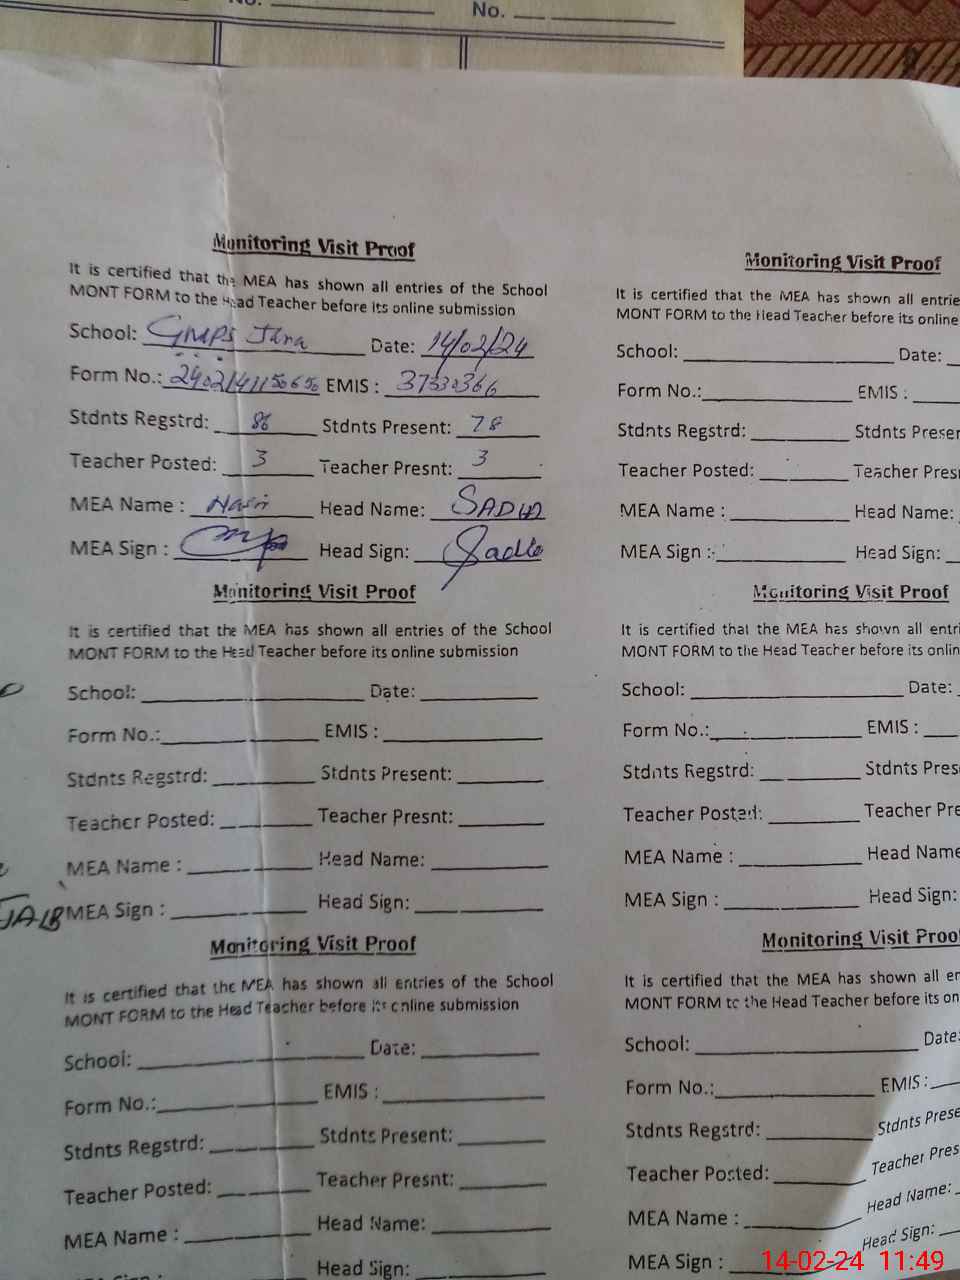 No. No.
Monitoring Visit Proof
It is certified that the MEA has shown all entries of the School
MONT FORM to the Head Teacher before its online submission
School: GMPS Jhna Date: 14/02/24
Form No.: EMIS :
Stdnts Regstrd: 86 Stdnts Present: 78
Teacher Posted: 3 Teacher Presnt: 3
MEA Name : Nasir Head Name: SADIA
MEA Sign : Head Sign: Sadia
Monitoring Visit Proof
It is certified that the MEA has shown all entries of the School
MONT FORM to the Head Teacher before its online submission
School: Date:
Form No.: EMIS :
Stdnts Regstrd: Stdnts Present:
Teacher Posted: Teacher Presnt:
MEA Name : Head Name:
MEA Sign : Head Sign:
Monitoring Visit Proof
It is certified that the MEA has shown all entries of the School
MONT FORM to the Head Teacher before its online submission
School: Date:
Form No.: EMIS :
Stdnts Regstrd: Stdnts Present:
Teacher Posted: Teacher Presnt:
MEA Name : Head Name:
MEA Sign : Head Sign:
Monitoring Visit Proof
It is certified that the MEA has shown all entrie
MONT FORM to the Head Teacher before its online
School: Date:
Form No.: EMIS :
Stdnts Regstrd: Stdnts Presen
Teacher Posted: Teacher Presn
MEA Name : Head Name:
MEA Sign : Head Sign:
Monitoring Visit Proof
It is certified that the MEA has shown all entri
MONT FORM to the Head Teacher before its onlin
School: Date:
Form No.: EMIS :
Stdnts Regstrd: Stdnts Pres
Teacher Posted: Teacher Pre
MEA Name : Head Name
MEA Sign : Head Sign:
Monitoring Visit Proof
It is certified that the MEA has shown all en
MONT FORM to the Head Teacher before its on
School: Date:
Form No.: EMIS :
Stdnts Regstrd: Stdnts Prese
Teacher Posted: Teacher Pres
MEA Name : Head Name:
MEA Sign : Head Sign:
14-02-24 11:49